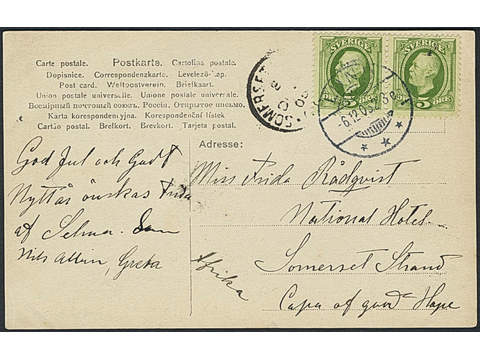 Carte postale. Postkarte. Cartolina postale.
Dopisnice. Correspondenzkarte. Levelező-Lap.
Post card. Weltpostverein. Briefkaart.
Union postale universelle. Unione postale universale.
Всемірный почтовый союзъ. Россія. Открытое письмо.
Karta korespondencyjna. Korespondenční lístek
Cartão postal. Brefkort. Brevkort. Tarjeta postal.
SVERIGE
SVERIGE
5
SOMERSET
6.12.05
God Jul och Godt
Nyttår önskas Frida
af Selma.
Nils Greta
Adresse:
Miss Frida Rådqvist
National Hotel
Somerset Strand
Capa of good Hope
Afrika